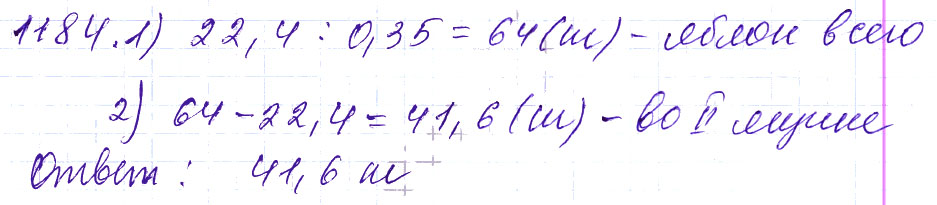 1184. 1) 22,4 : 0,35 = 64 (т) - яблок всего
2) 64 - 22,4 = 41,6 (т) - во II машине
Ответ: 41,6 т